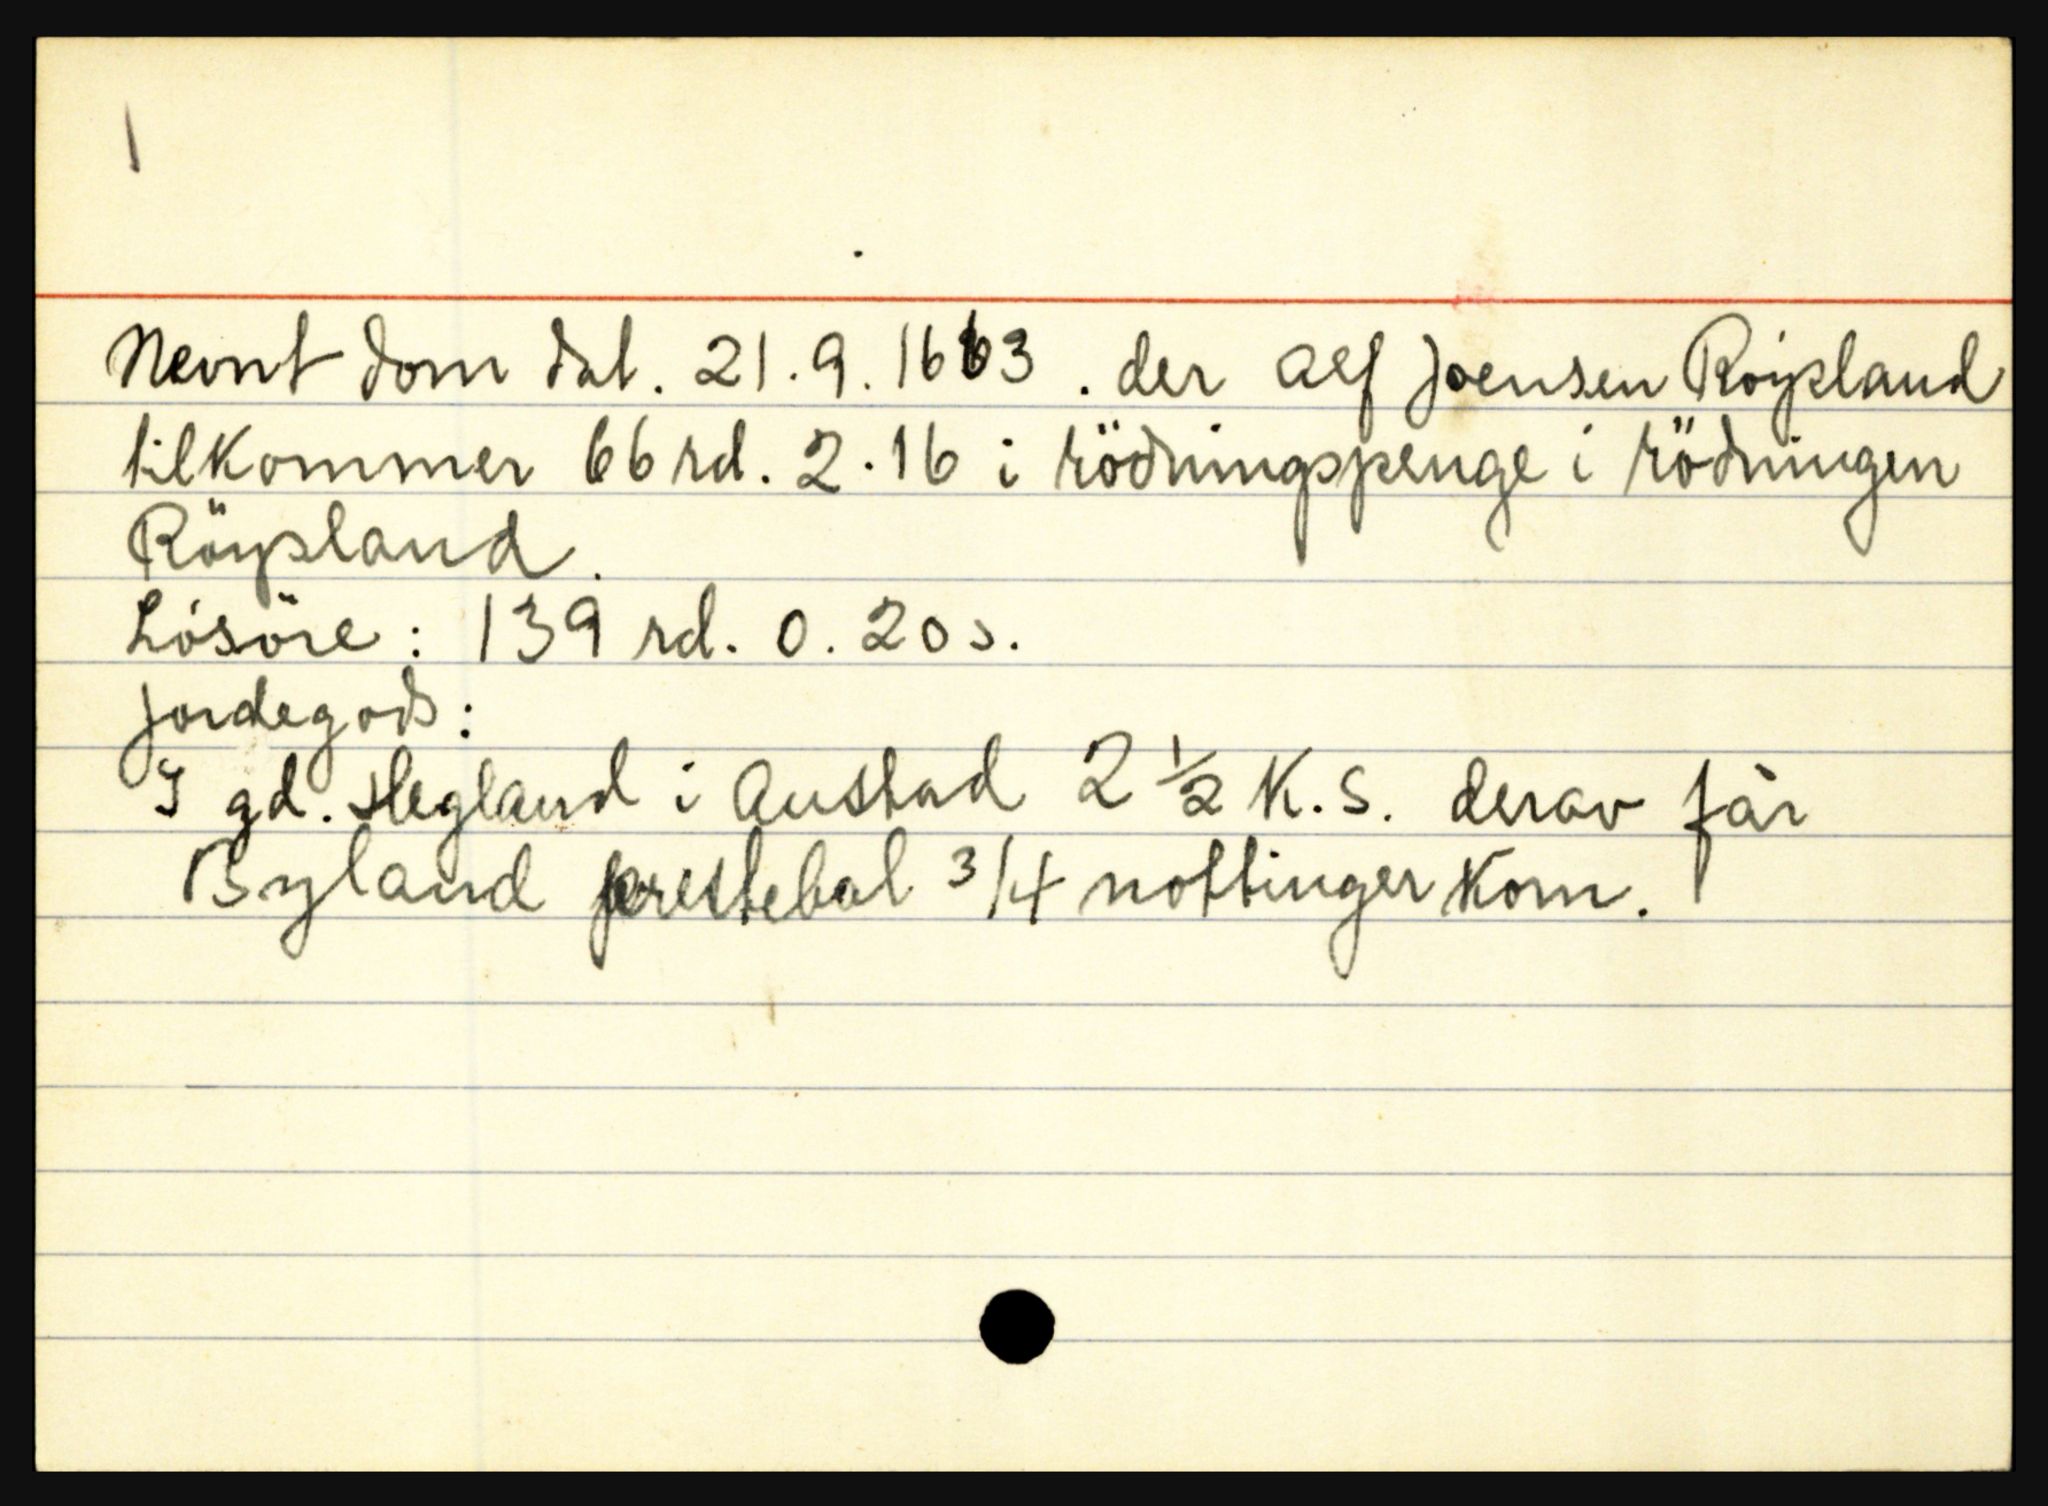 1
Nevnt dom dat. 21.9.1663. der Alf Joensen Röysland
tilkommer 66 rd. 2.16 i rödningspenge i rödningen
Röysland.
Lösöre: 139 rd. 0. 20 s.
Jordegods:
I gd. Hegland i Austad 2 1/2 K.S. derav får
Bygland prestebol 3/4 nottinger Korn.